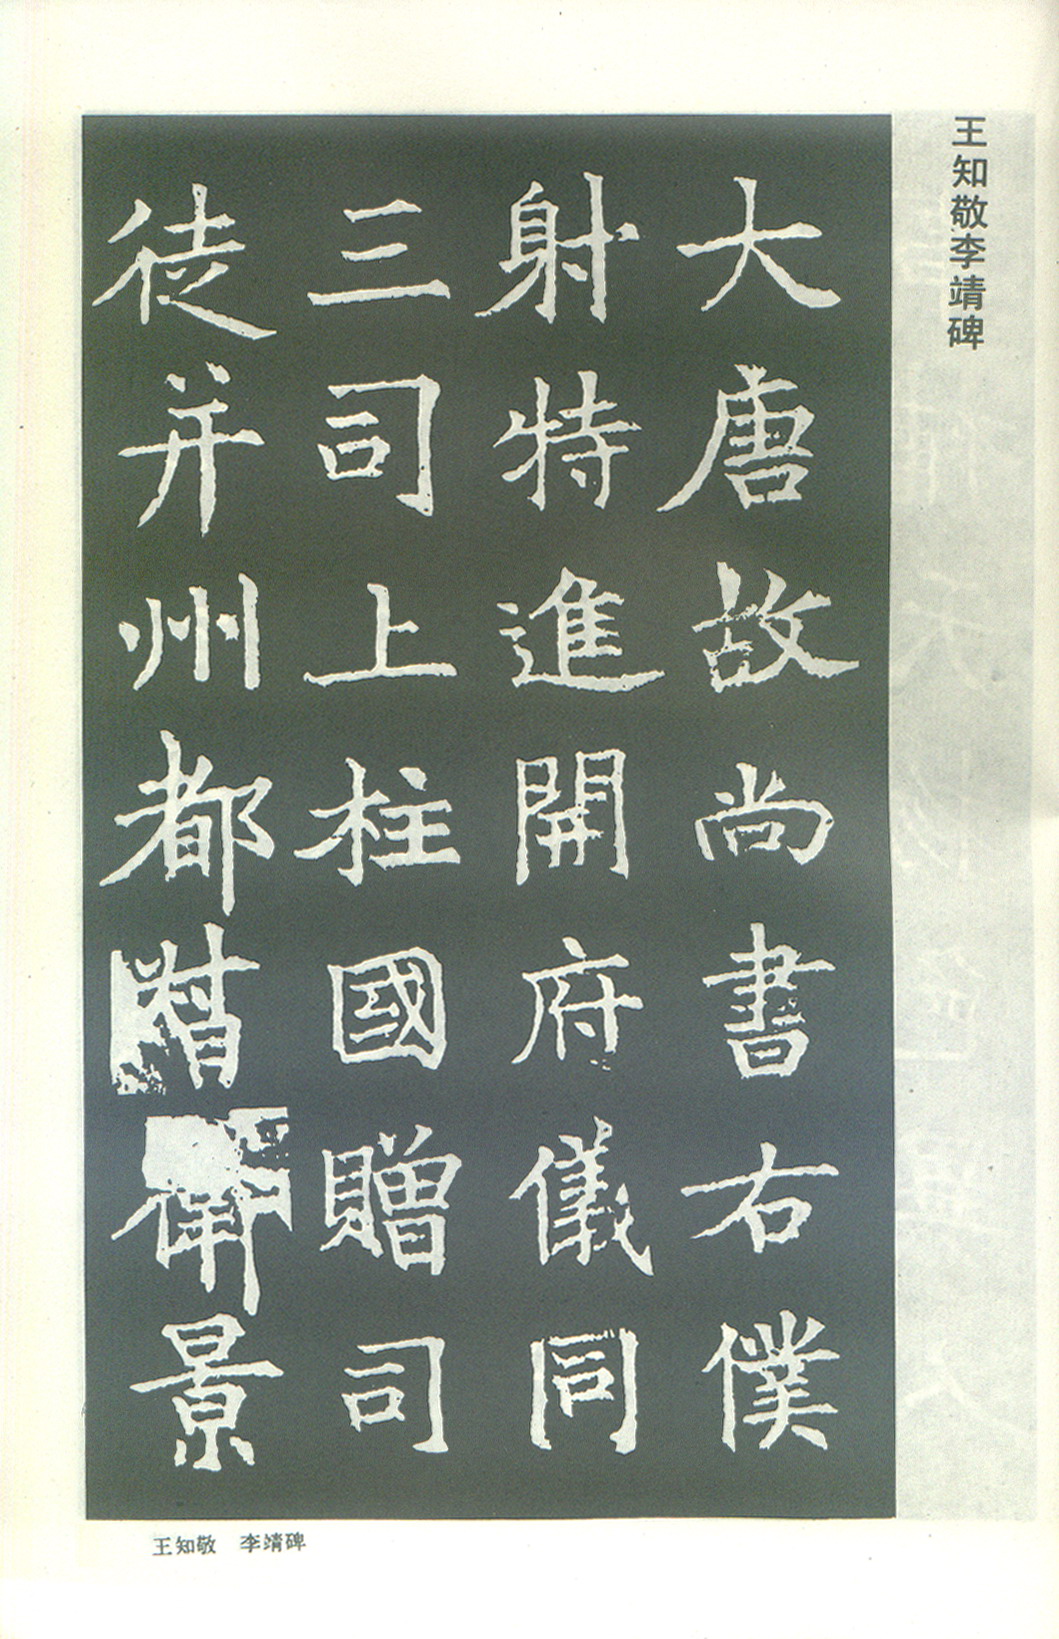 王知敬李靖碑
大唐故尚書右僕
射特進開府儀同
三司上柱國贈司
徒并州都督衛景
王知敬 李靖碑